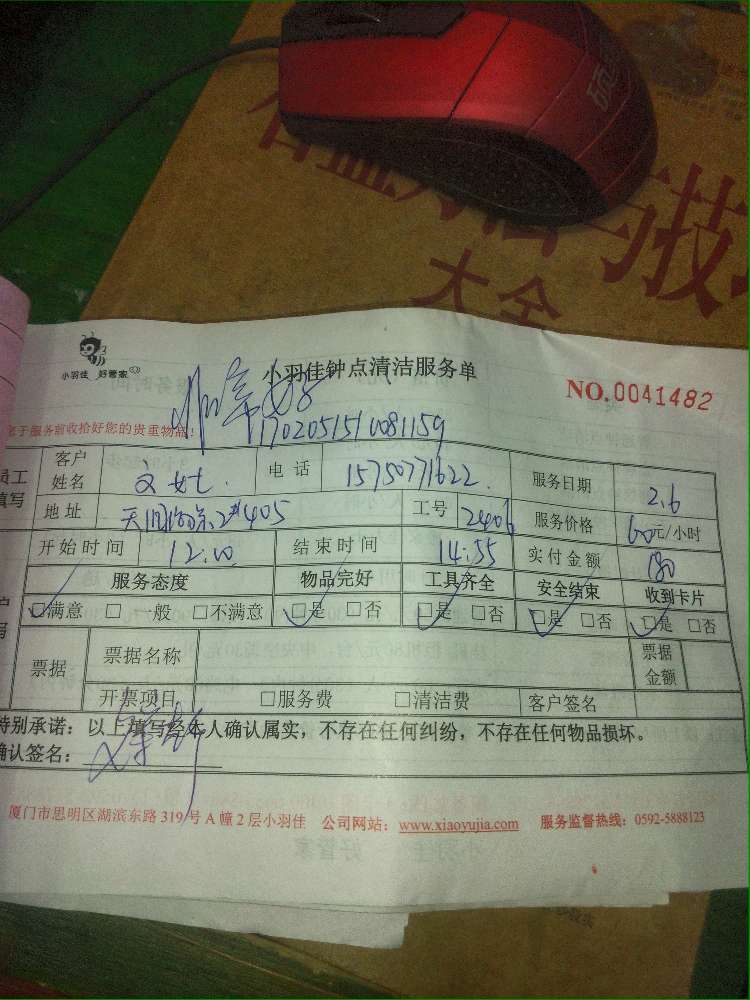 硕
与技
大全
小羽佳 好管家
小羽佳钟点清洁服务单
NO.0041482
于服务前收拾好您的贵重物品!
1702051510081159
员工填写 客户姓名 文女士. 电话 15750771622. 服务日期 2.6
地址 2#405 工号 2406 服务价格 60元/小时
开始时间 12.00 结束时间 14.55 实付金额 180
服务态度 物品完好 工具齐全 安全结束 收到卡片
☑满意 □ 一般 □不满意 ☑是 □否 ☑是 □否 ☑是 □否 ☑是 □否
票据 票据名称 票据金额
开票项目 □服务费 □清洁费 客户签名
特别承诺：以上填写经本人确认属实，不存在任何纠纷，不存在任何物品损坏。
确认签名：
厦门市思明区湖滨东路 319 号 A 幢 2 层小羽佳 公司网站：www.xiaoyujia.com 服务监督热线：0592-5888123